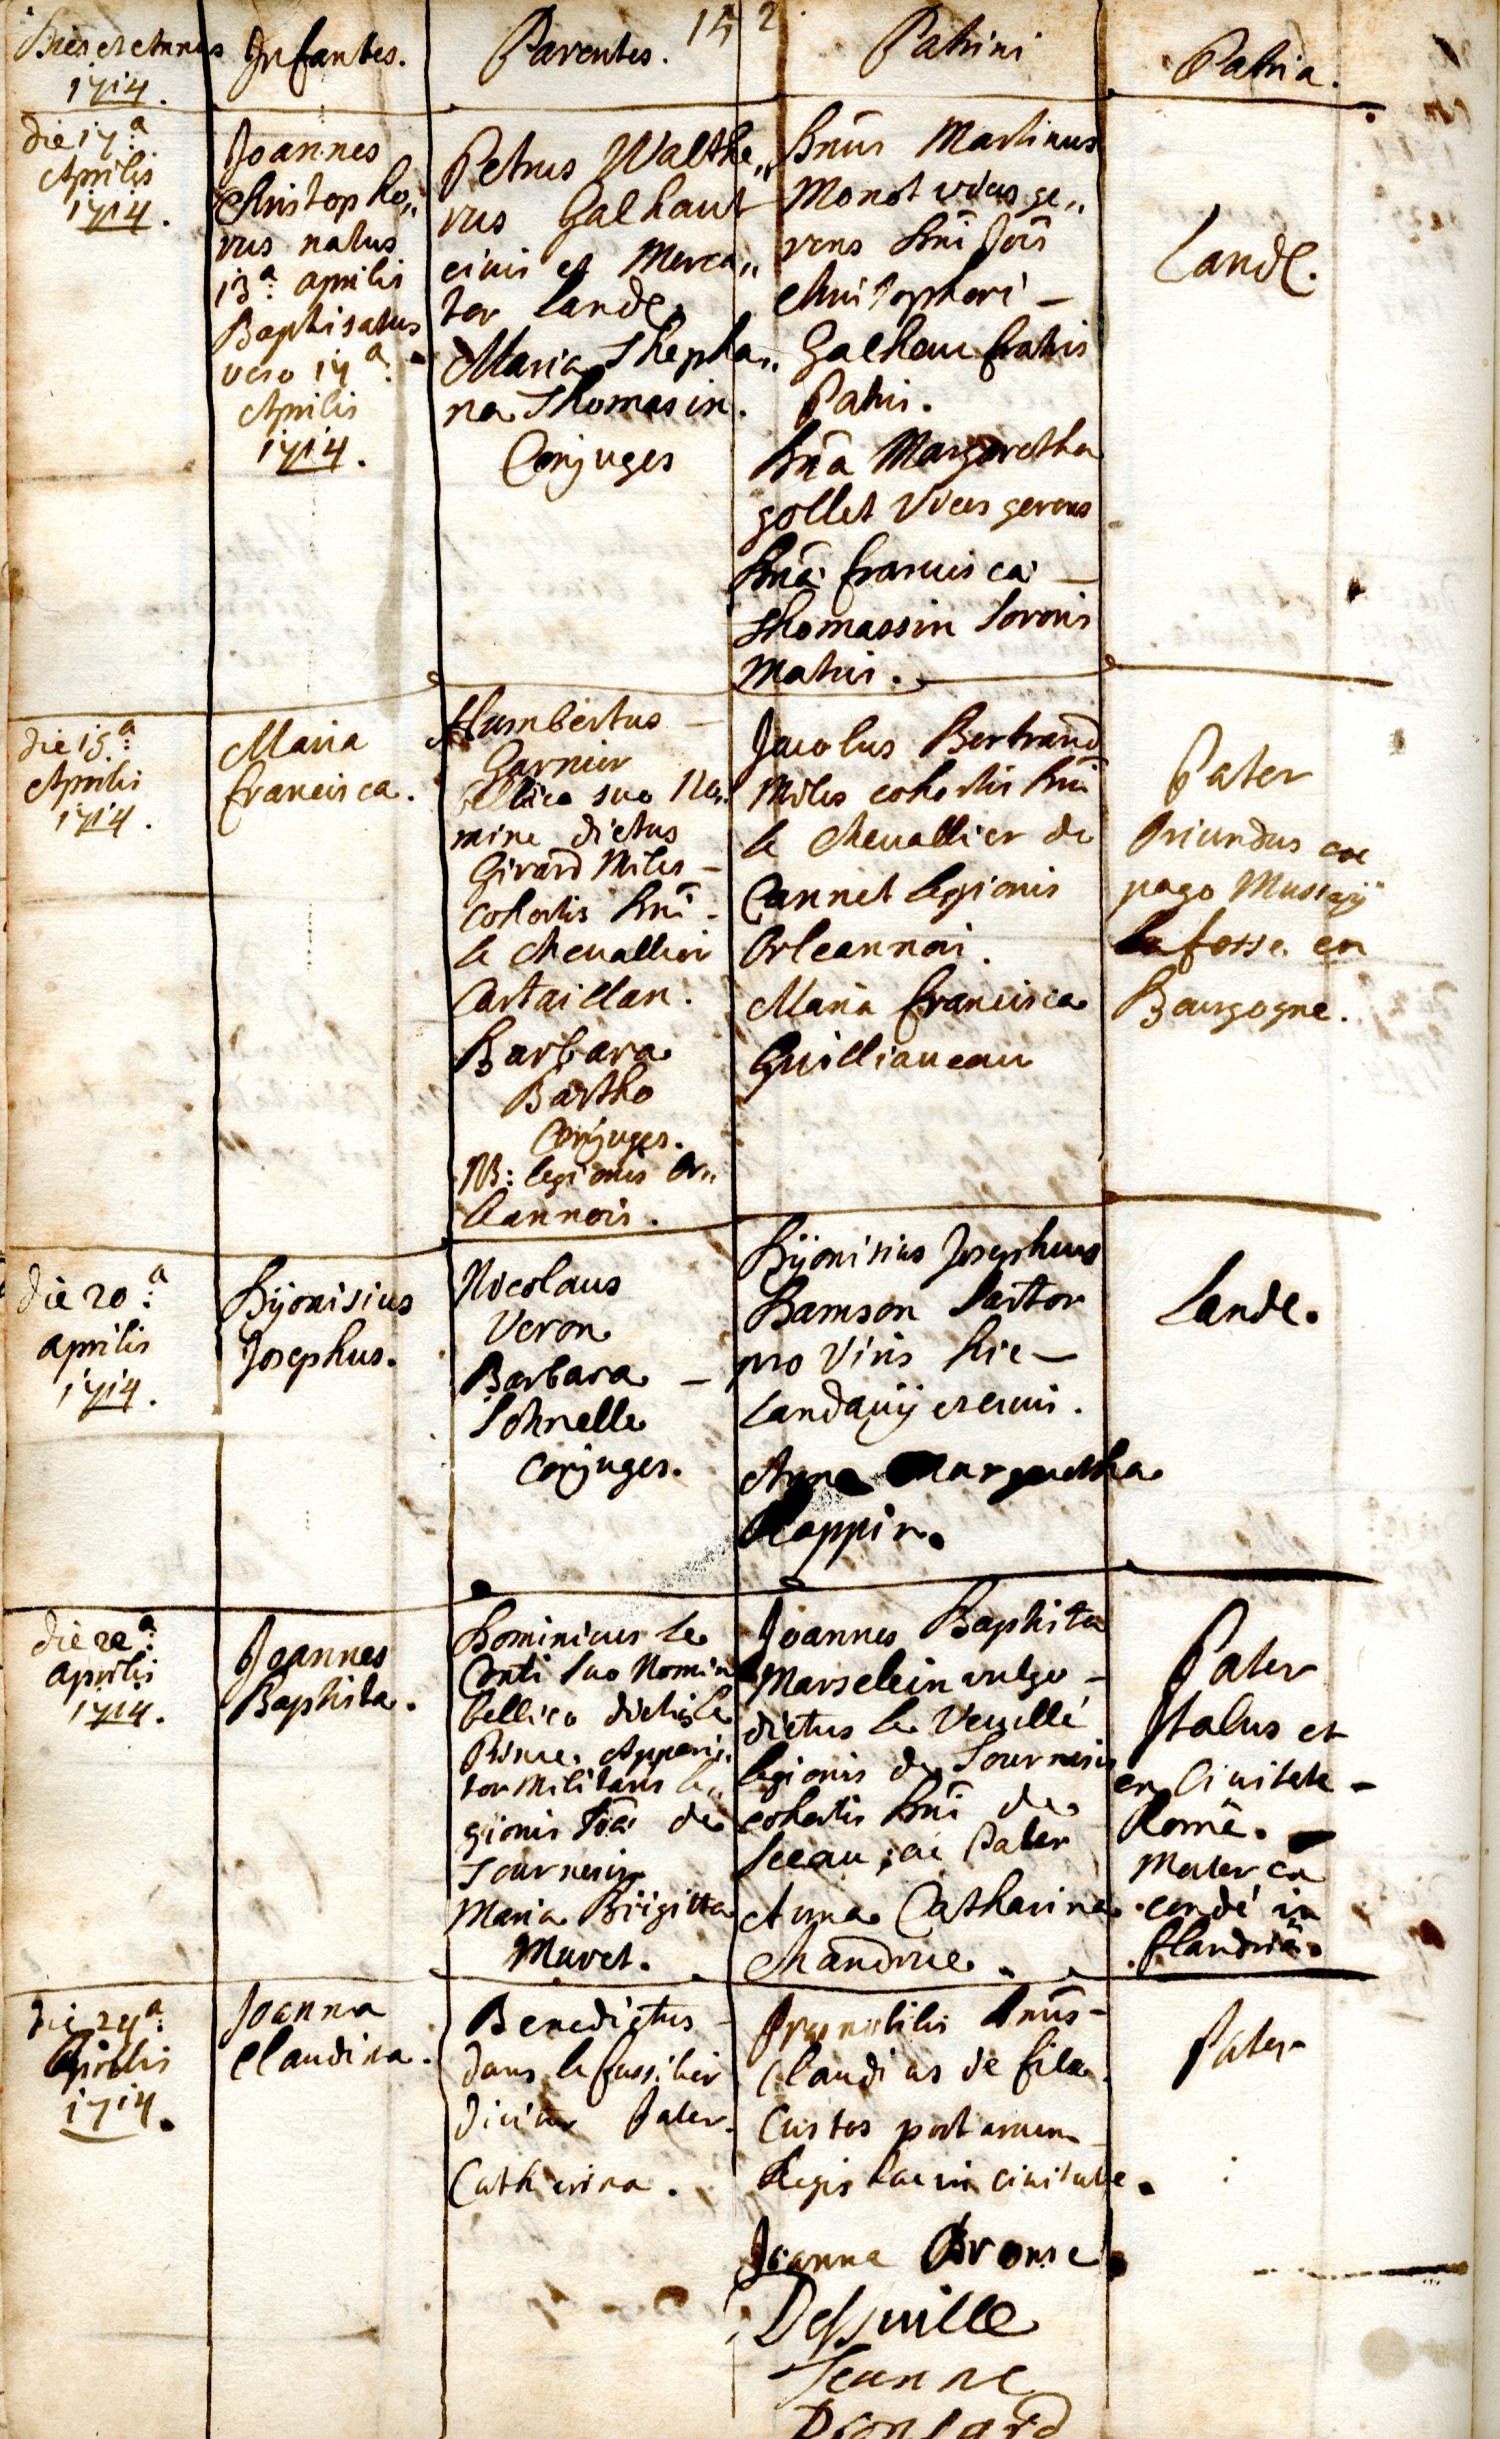 152
Dies et Annus
1714.
Infantes.
Parentes.
Patrini
Patria.
die 17.a
Aprilis
1714.
Joannes
Christopho„
rus natus
13.a aprilis
Baptisatus
vero 17.a
Aprilis
1714.
Petrus Walthe„
rus Galhaut
civis et Merca„
tor Landẽ.
Maria Stepha„
na Thomasin.
Conjuges
Dnũs Martinus
Monot vices ge„
rens Dnĩ Joĩs
Christophori –
Galhau fratris
Patris.
Dnã Margaretha
gollet Vices gerens
Dnã francisca –
Thomassin Sororis
Matris.
Landẽ.
die 15.a
Aprilis
1714.
Maria
francisca.
Humbertus –
Garnier
bellico suo No„
mine dictus
Girard Miles –
cohortis Dnĩ –
le Chevallier
Cartaillan.
Barbara
Bartho
Conjuges.
NB: legionis Or„
leannois.
Jacobus Bertrand
Miles cohortis Dnĩ
le Chevallier de
Cannet legionis
Orleannoi.
Maria francisca
Guilliaueau
Pater
Oriundus ex
pago Mussaÿ
la fosse en
Bourgogne.
die 20.a
aprilis
1714.
Dÿonisius
Josephus.
Nicolaus
Veron
Barbara –
Schnelle
Conjuges.
Dÿonisius Josephus
Samson Sartor
pro Viris hic –
Landavÿ et civis.
Anna Margaretha
Rappin.
Lande.
die 22.a
aprilis
1714.
Joannes
Baptista.
Dominicus Le
Conti suo Nomin
bellico dictus le
Prince. Appari„
tor Militaris le„
gionis de
Tournesis
Maria Brigitta
Muret.
Joannes Baptista
Marselein vulgo –
dictus le Veuillé
legionis de Tournesis
cohortis Dnĩ de
Sceau; ac Pater
Anna Catharina
Chandrue.
Pater
Italus et
ex Civitate –
Româ.
Mater ex
condé in
flandriâ.
die 24.a
Aprilis
1714.
Joanna
Claudina.
Benedictus –
dans le fussilier
dicitur Pater.
Catherina.
Prænobilis dnũs –
Claudius de fila
Custos portarum
Regis hac in civitate.
Joanna Bronse
Dessuille
Jeanne
Pater